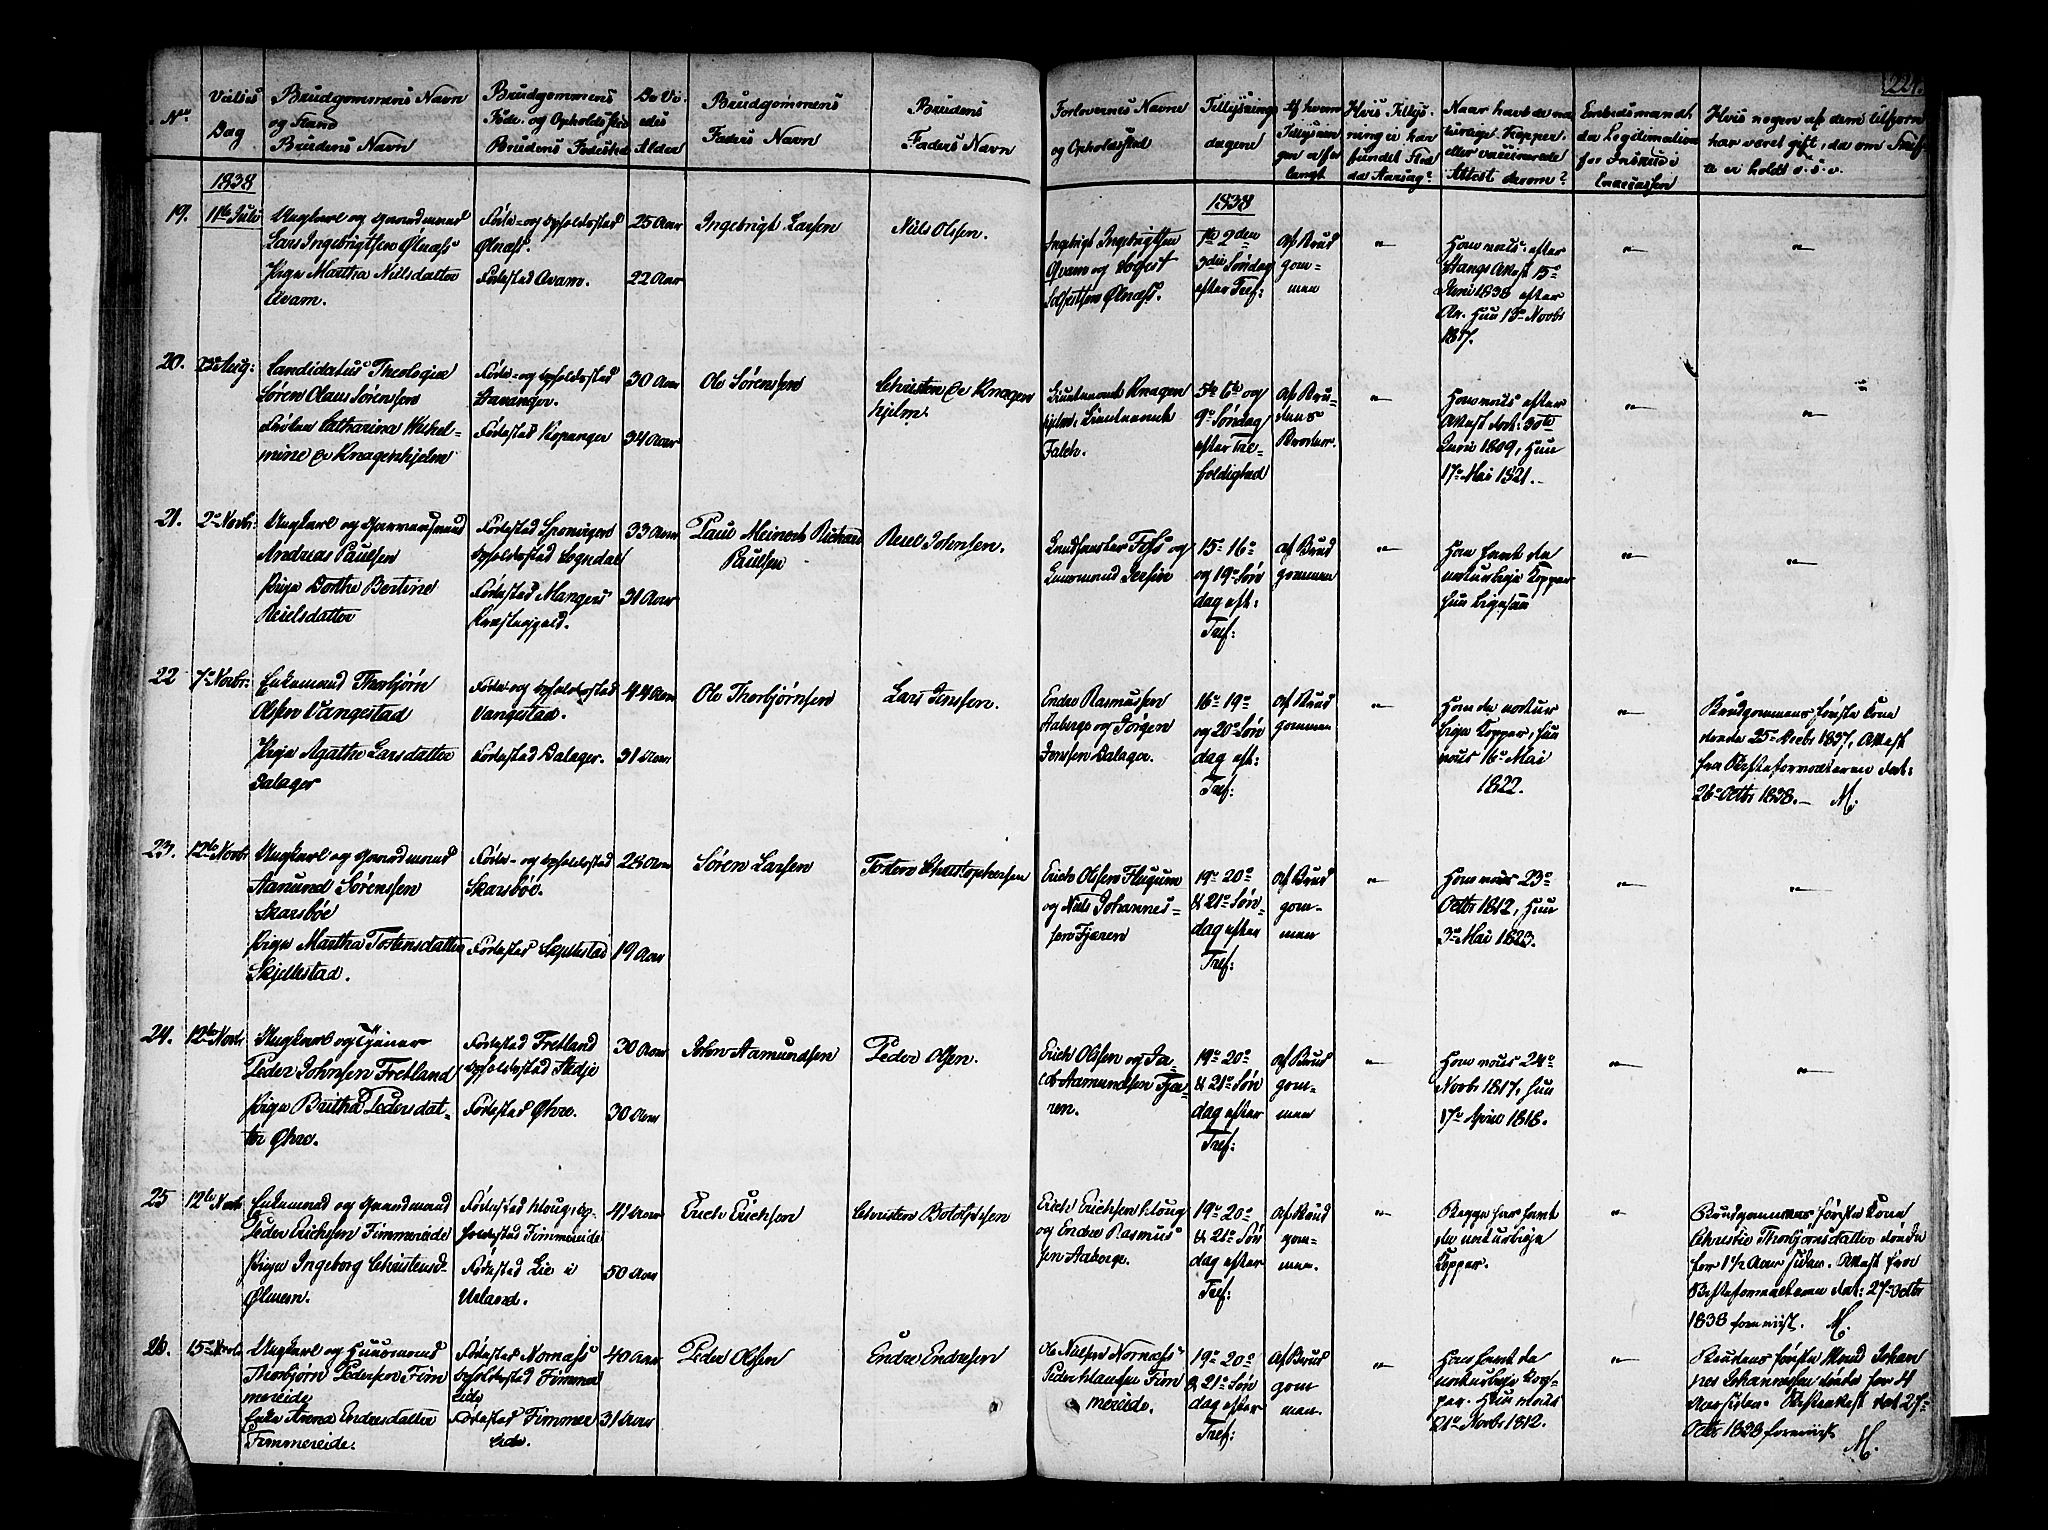 224.
No
Vielses
Dag
Brudgommens Navn
og Stand
Brudens Navn
Brudgommens
Føde- og Opholdssted
Brudens Fødested
De Vi-
edes
Alder
Brudgommens
Faders Navn
Brudens
Faders Navn
Forlovernes Navne
og Opholdssted
Tillysnings
dagene
Af hvem
Tillysnin
gen er for
langt
Hvis Tillys-
ning ei har
fundet Sted
da Aarsag?
Naar havt de na
turlige Kopper
eller vaccinerede
Attest derom?
Embedsmænds
da Legitimation
for Indskud i
Enkecassen
Hvis nogen af dem tilforn
har været gift, da om Skif-
te er holdt o.s.v.
1838
1838
19.
11te Juli
Ungkarl og Gaardmand
Lars Ingebrigtsen Ølnæss
Pige Martha Nilsdatter
Qvam.
Føde- og Opholdssted
Ølnæss.
Fødested Qvam.
25 Aar
22 Aar
Ingebrigt Larsen
Niels Olsen.
Ingebrigt Ingebrigtsen
Qvam og
Ølnæss.
1te 2den
3die Søndag
efter Tref:
af Brud
gom-
men
"
Ham vacc: efter
Stangs Attest 15de
Juni 1838 efter
Hun 13de Novbr
1817.
"
"
20.
23 Aug:
Candidatus Theologiæ
Søren Olaus Sørensen
Frøken Catharina Wilhel-
mine de Knagenhjelm
Føde- og Opholdssted
Stavanger.
Fødested Kopanger
30 Aar
34 Aar
Ole Sørensen
Christen de Knagen
hjelm.
Lieutenant Knagen
hjelm, Lieutenant
Falch.
5te 6te og
9de Søndag
efter Tre-
foldighed
af Bru-
dens
Broder.
"
Ham vacc: efter
Attest dat: 30te
Juni 1809, Hun
17de Mai 1821.
"
"
21.
2de Novbr:
Ungkarl og
Andreas Paulsen
Pige Dorthe Bertine
Reielsdatter
Fødested
Opholdssted Sogndal
Fødested Mangers
Præstegjeld.
33 Aar
31 Aar
Paul Meinert Richard
Paulsen
Reiel Johnsen.
Landhandler Foss og
Lensmand
15de 16de
og 19de Søn
dag eft:
Tref:
af Brud
gommen
"
Ham havt de
naturlige Kopper
Hun ligesaa
"
"
22
7de Novbr:
Enkemand Thorbjørn
Olsen Vangestad
Pige Agathe Larsdatter
Dalager
Føde- og Opholdssted
Vangestad.
Fødested Dalager.
44 Aar
31 Aar
Ole Thorbjørnsen
Lars Jensen.
Endre Rasmussen
Aaberge og Jørgen
Jensen Dalager.
16de 19de
og 20de Søn
dag eft:
Tref:
af Brud
gommen
"
Ham de natur
lige Kopper, Hun
vacc 16de Mai
1822.
"
Brudgommens første Kone
døde 25de Decbr 1837, Attest
fra Skifteforvalteren dat:
26de Octbr 1838. M.
23.
12te Novbr
Ungkarl og Gaardmand
Aamund Sørensen
Skarsbøe
Pige Martha Tostensdatter
Skjeldestad.
Føde- og Opholdssted
Skarsbøe.
Fødested Skjeldestad
28 Aar
19 Aar
Søren Larsen
Tosten Christophersen
Erich Olsen Flugum
og Niels Johannes-
sen Fjæren
19de 20de
& 21de Søn-
dag efter
Tref:
af Brud
gom-
men
"
Ham vacc 23de
Octbr 1812, Hun
3de Mai 1823.
"
"
24.
12te Novbr
Ungkarl og Tjener
Peder Johnsen Fretland
Pige Britha Peder dat-
ter Øhre.
Fødested Fretland
Opholdssted Stedje
Fødested Øhre.
30 Aar
30 Aar
John Aamundsen
Peder Olsen.
Erich Olsen og Ja-
cob Aamundsen Fjæ-
ren.
19de 20de
& 21de Søn
dag efter
Tref:
af Brud
gom-
men
"
Ham vacc 24de
Novbr 1817, Hun
17de April 1818.
"
"
25
12te Novbr
Enkemand og Gaardmand
Peder Erichsen Fimmereide
Pige Ingeborg Christensd.
Ølmem.
Fødested Kloug, Op-
holdssted Fimmereide
Fødested Lie i
Urland.
41 Aar
50 Aar
Erich Erichsen
Christen Botolfsen
Erich Erichsen Kloug
og Endre Rasmus
sen Aaberge.
19de 20de
& 21de Søn
dag efter
Tref:
af Brud
gom-
men.
"
Begge har havt
de naturlige
Kopper.
"
Brudgommens første Kone
Christie Thorbjørnsdatter døde
for 1½ Aar siden. Attest fra
Skifteforvalteren dat: 27de Octbr
1838 foreviist. M.
26.
15de Novbr
Ungkarl og Huusmand
Thorbjørn Pedersen Fim
mereide
Enke Anna Endresdatter
Fimmereide.
Fødested Nornæss
Opholdssted Fimmer
eide
Fødested Fimmer
eide.
40 Aar
31 Aar
Peder Olsen
Endre Endresen
Ole Nilsen Nornæss
Peder Klausen Fim
mereide.
19de 20de
& 21de Søn
dag efter
Tref:
af Brud
gom
men.
"
Ham havt de
naturlige Kop-
per. Hun vacc
21de Novbr 1812.
"
Brudens første Mand Johan
nes Johannesen døde for 4
Aar siden. Skifteattest dat 27de
Octbr 1838 foreviist
M.